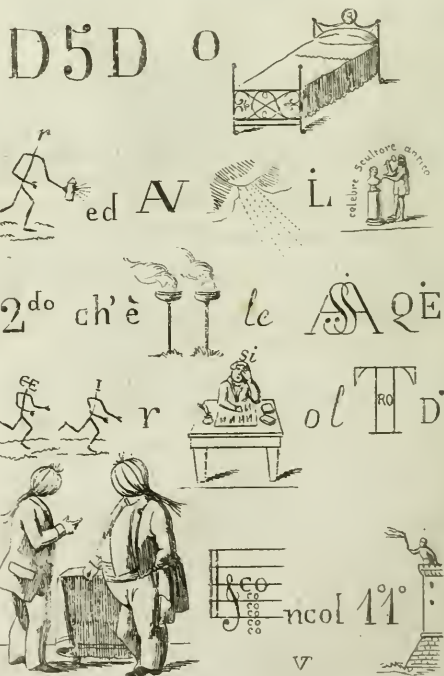 D5D O
r
ed AV i L celebre Scultore antico
2do ch'è le ASSA QE
si
CE I r ol T RO D'
co co co co co ncol 1°1°
V